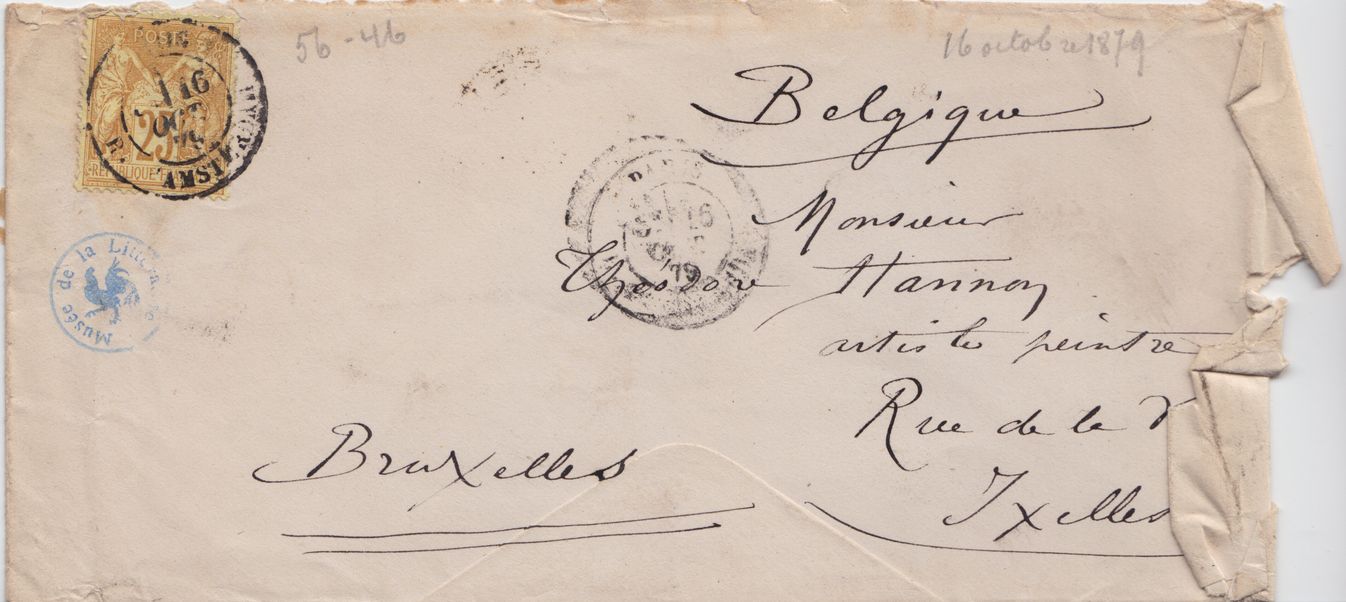 56-46
16 octobre 1879
POSTE
25
RÉPUBLIQUE
16
OCT
R. AMSTERDAM
Belgique
PARIS
16
79
Monsieur
Théodore Hannon
artiste peintre
Rue de la
Ixelles
Bruxelles
Musée de la